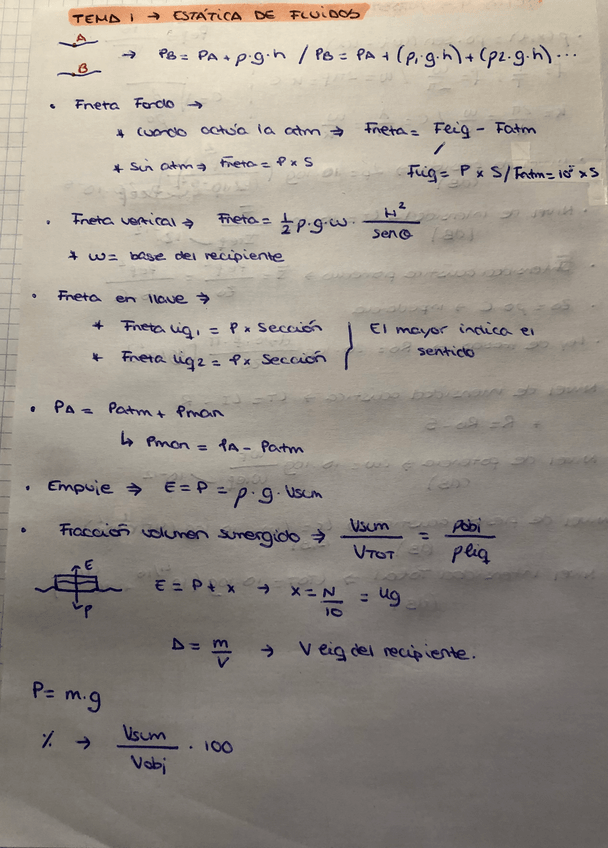 TEMA 1 → ESTÁTICA DE FLUIDOS
A
B
→ PB = PA + ρ·g·h / PB = PA + (ρ1·g·h) + (ρ2·g·h) ...
• Fneta Fondo →
* Cuando actúa la atm ⇒ Fneta = Fliq - Fatm
* Sin atm ⇒ Fneta = P x S
Fliq = P x S / Fatm = 10⁵ x S
• Fneta vertical ⇒ Fneta = 1/2 ρ·g·w · H²/senθ
* w = base del recipiente
• Fneta en llave ⇒
* Fneta liq1 = P x Sección
* Fneta liq2 = P x Sección
El mayor indica el
sentido
• PA = Patm + Pman
↳ Pman = PA - Patm
• Empuje ⇒ E = P = ρ·g·Vsum
• Fracción volumen sumergido ⇒ Vsum/VTOT = ρobj/ρliq
E
P
E = P + x → x = N/10 = kg
D = m/V → V liq del recipiente.
P = m·g
% → Vsum/Vobj · 100